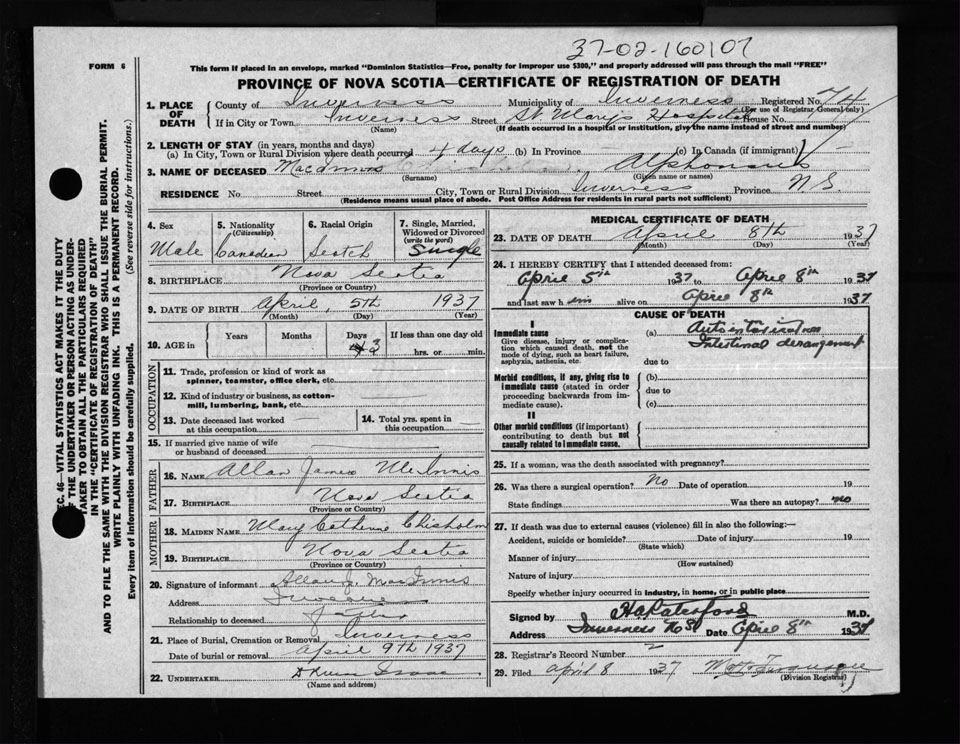 37-02-160107
FORM 6
This form if placed in an envelope, marked "Dominion Statistics—Free, penalty for improper use $300," and properly addressed will pass through the mail "FREE"
PROVINCE OF NOVA SCOTIA—CERTIFICATE OF REGISTRATION OF DEATH
1. PLACE OF DEATH
County of Inverness Municipality of Inverness Registered No. 74
(For use of Registrar General only)
If in City or Town Inverness Street St Mary's Hospital House No.
(Name) (If death occurred in a hospital or institution, give the name instead of street and number)
2. LENGTH OF STAY (in years, months and days)
(a) In City, Town or Rural Division where death occurred 4 days (b) In Province (c) In Canada (if immigrant)
3. NAME OF DECEASED MacInnis Alphonsus
(Surname) (Given name or names)
RESIDENCE No. Street City, Town or Rural Division Inverness Province N S
(Residence means usual place of abode. Post Office Address for residents in rural parts not sufficient)
4. Sex
Male
5. Nationality
(Citizenship)
Canadian
6. Racial Origin
Scotch
7. Single, Married, Widowed or Divorced
(write the word)
Single
8. BIRTHPLACE Nova Scotia
(Province or Country)
9. DATE OF BIRTH April, 5th 1937
(Month) (Day) (Year)
10. AGE in Years Months Days If less than one day old
3 hrs. or min.
OCCUPATION
11. Trade, profession or kind of work as
spinner, teamster, office clerk, etc.
12. Kind of industry or business, as cotton-
mill, lumbering, bank, etc.
13. Date deceased last worked
at this occupation
14. Total yrs. spent in
this occupation
15. If married give name of wife
or husband of deceased
FATHER
16. NAME Allan James McInnis
17. BIRTHPLACE Nova Scotia
(Province or Country)
MOTHER
18. MAIDEN NAME Mary Catherine Chisholm
19. BIRTHPLACE Nova Scotia
(Province or Country)
20. Signature of informant Allan J. MacInnis
Address Inverness
Relationship to deceased father
21. Place of Burial, Cremation or Removal Inverness
Date of burial or removal April 9th 1937
22. UNDERTAKER
(Name and address)
MEDICAL CERTIFICATE OF DEATH
23. DATE OF DEATH April 8th 1937
(Month) (Day) (Year)
24. I HEREBY CERTIFY that I attended deceased from:
April 5th 1937 to April 8th 1937
and last saw him alive on April 8th 1937
CAUSE OF DEATH
I
Immediate cause
Give disease, injury or complication which caused death, not the mode of dying, such as heart failure, asphyxia, asthenia, etc.
(a) Autointoxication
Intestinal derangement
due to
Morbid conditions, if any, giving rise to immediate cause (stated in order proceeding backwards from immediate cause).
(b)
due to
(c)
II
Other morbid conditions (if important) contributing to death but not causally related to I immediate cause.
25. If a woman, was the death associated with pregnancy?
26. Was there a surgical operation? No Date of operation 19
State findings Was there an autopsy? no
27. If death was due to external causes (violence) fill in also the following:—
Accident, suicide or homicide? Date of injury 19
(State which)
Manner of injury
(How sustained)
Nature of injury
Specify whether injury occurred in industry, in home, or in public place
Signed by M.D.
Address Inverness N S Date April 8th 1937
28. Registrar's Record Number
29. Filed April 8 1937
(Division Registrar)
SEC. 46—VITAL STATISTICS ACT MAKES IT THE DUTY
OF THE UNDERTAKER OR PERSON ACTING AS UNDER-
TAKER TO OBTAIN ALL THE PARTICULARS REQUIRED
IN THE "CERTIFICATE OF REGISTRATION OF DEATH"
AND TO FILE THE SAME WITH THE DIVISION REGISTRAR WHO SHALL ISSUE THE BURIAL PERMIT.
WRITE PLAINLY WITH UNFADING INK. THIS IS A PERMANENT RECORD.
Every item of information should be carefully supplied. (See reverse side for instructions.)